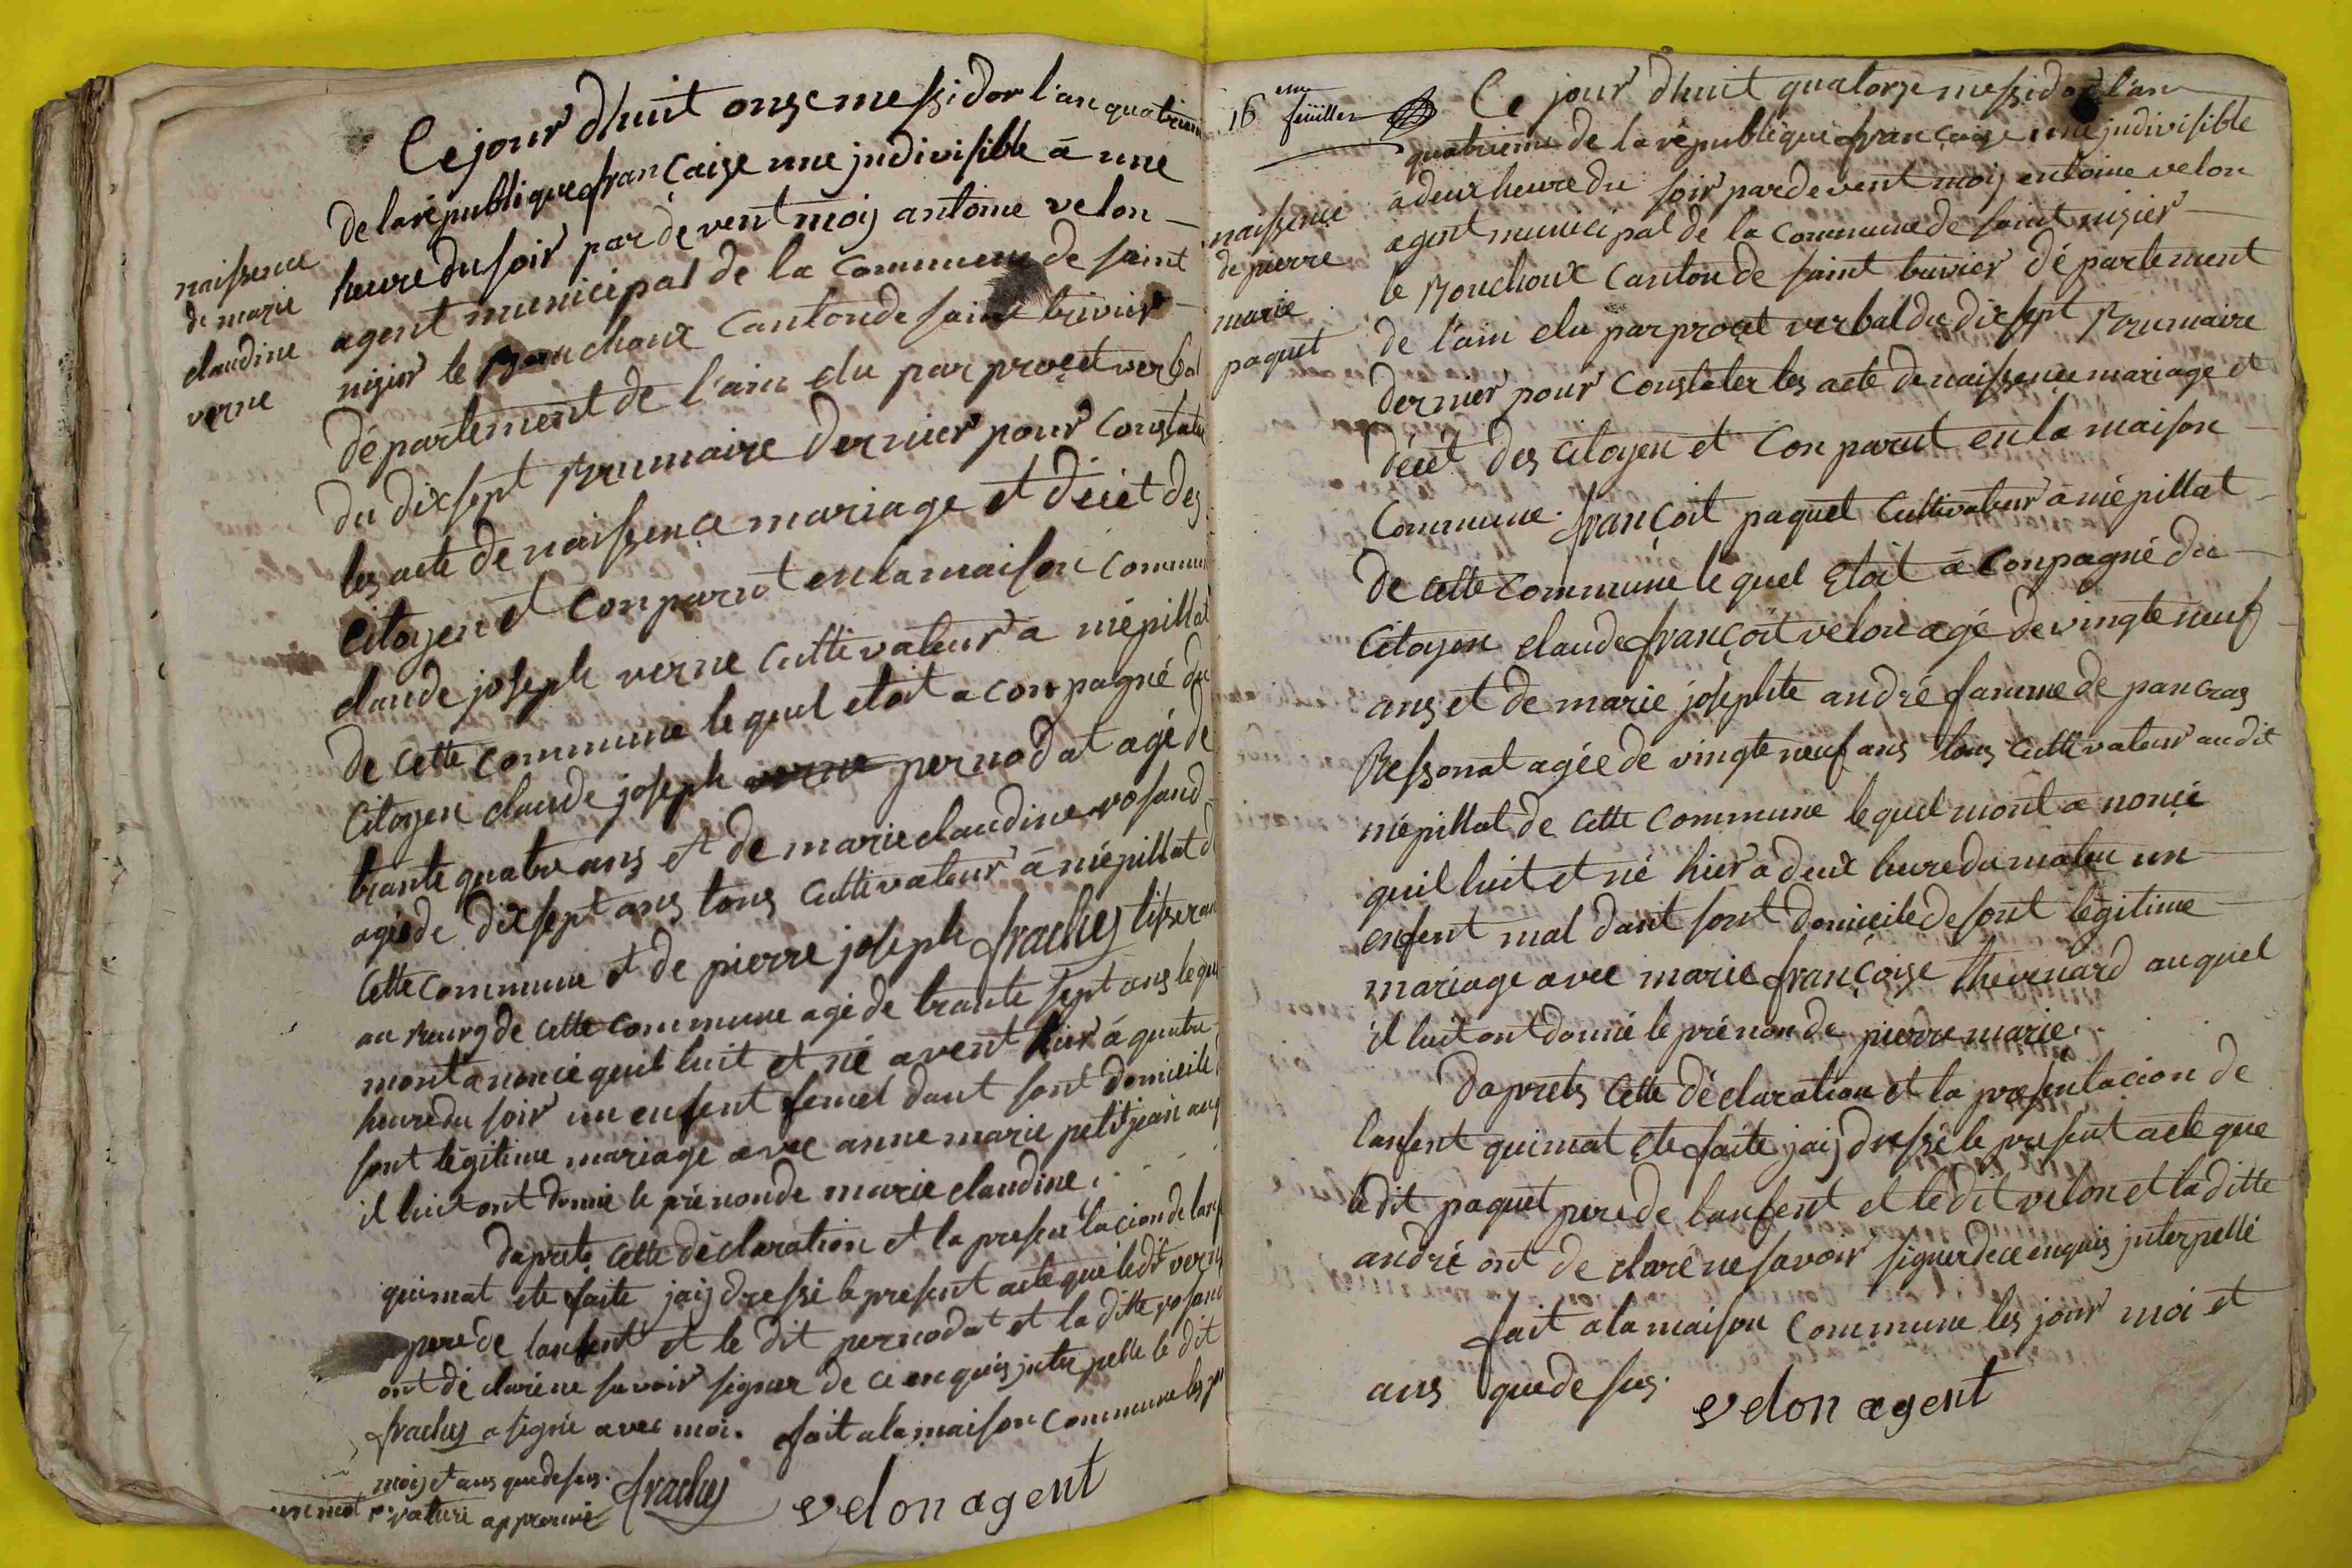 Ce jour d'huit onse messidor l'an quatrieme
de la république française une jndivisible à une
heure du soir par devent moij antoine velon
agent municipal de la commune de saint
nisier le Bouchoux canton de saint trivier
département de l'ain elu par procèt verbal
du dix sept Brumaire dernier pour constater
les acte de naissence mariage et décèt des
citoyen et conparut en la maison commune
claude joseph verne cultivateur a niépillat
de cette commune le quel etoit a conpagné du
citoyen claude joseph verne pernodat agé de
trante quatre ans et de marie claudine vosand
agée de dix sept ans tous cultivateur à niépillat de
cette commune et de pierre joseph frachej tisseran
au Bourg de cette commune agé de trante sept ans le quel
mont anoncé quil luit et né avent hier à quatre
heure du soir un enfent femel dant sont domicile de
sont légitime mariage avec anne marie petitjean auquel
il luit ont donné le prénon de marie claudine.
naissence
de marie
claudine
verne
Daprets cette déclaration et la presentacion de lanfent
quimat ete faite jaij dressé le present acte que ledit verne
pere de lanfent et le dit pernodat et la ditte vosand
ont déclaré ne savoir signer de ce enquis jnterpellé le dit
frachej a signé avec moi. fait a la maison commune les jour
moij et ans que desus. frachej
velon agent
un mot rature approuvé
16 eme feüillet
Ce jour d'huit quatorze messidor l'an
quatrieme de la république française une jndivisible
à deux heure du soir par devent moij entoine velon
agent municipal de la commune de saint nisier
le Bouchoux canton de saint trivier département
de l'ain elu par procet verbal du dix sept Brumaire
dernier pour constater les acte de naissence mariage et
décèt des citoyen et conparut en la maison
commune. françoit paquet cultivateur à niépillat
de cette commune le quel etoit a conpagné du
citoyen claude françoit velon agé de vingte neuf
ans et de marie josephte andré famme de pancras
Ressonat agée de vingte neuf ans tous cultivateur au dit
niépillat de cette commune le quel mont a noncé
quil luit et né hier a deux heure du maten un
enfent mal dant sont domicile de sont légitime
mariage avec marie françoise thevenard au quel
il luit ont donné le prénon de pierre marie.
naissence
de pierre
marie
paquet
Daprets cette déclaration et la presentacion de
lanfent quimat ete faite jaij dressé le present acte que
ledit paquet pere de lanfent et ledit velon et la ditte
andré ont declaré ne savoir signer de ce enquis jnterpellé
fait a la maison commune les jour moi et
ans que de sus.
velon agent